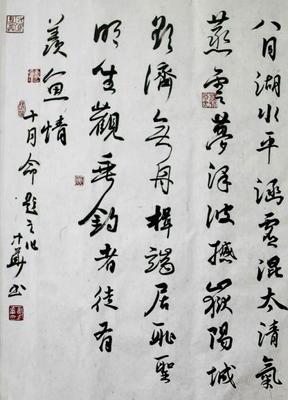 八月湖水平涵虛混太清氣
蒸雲夢澤波撼嶽陽城
欲濟無舟楫端居耻聖
明坐觀垂釣者徒有
羨魚情
十月命題之作